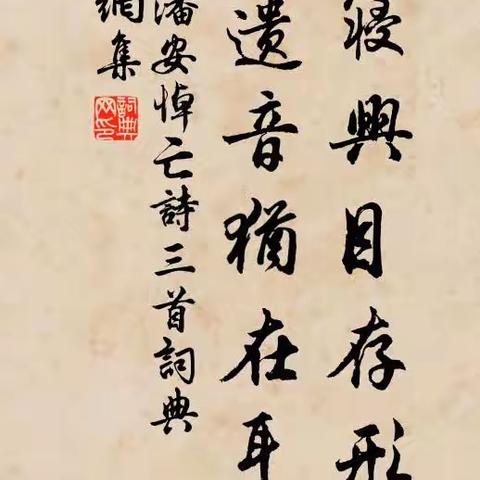 寝興目存形
遗音猶在耳
潘安悼亡詩三首詞典
網集
詞典
网